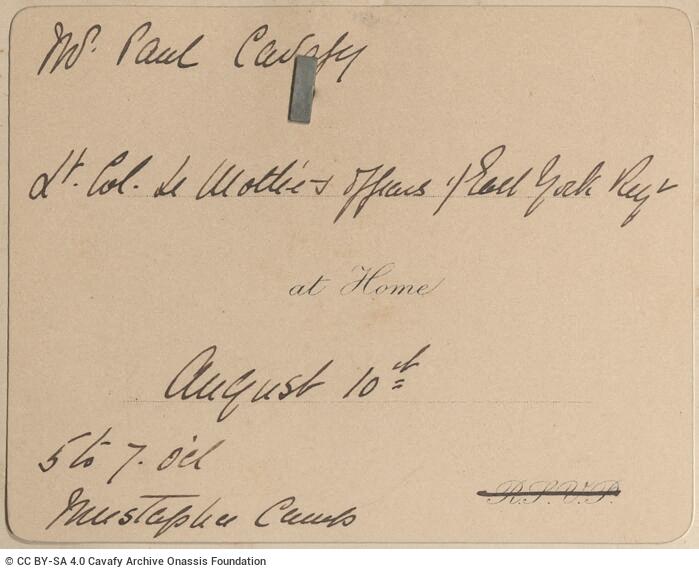 Mr. Paul Cavafy
Lt. Col. Le Mottée & Officers East York Regt
at Home
August 10th
5 to 7. o'cl
Mustapha Camp
R.S.V.P.
© CC BY-SA 4.0 Cavafy Archive Onassis Foundation